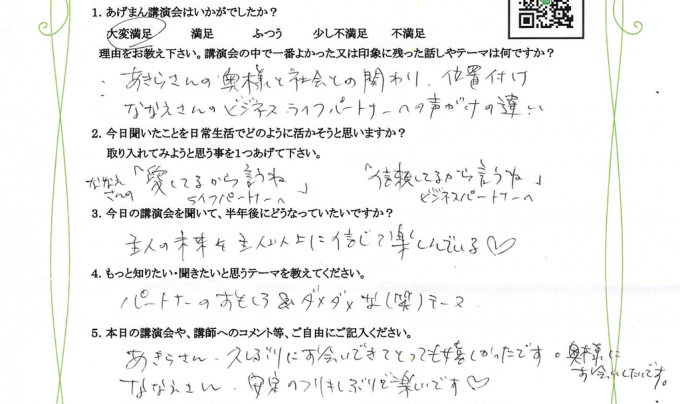 1. あげまん講演会はいかがでしたか？
大変満足　満足　ふつう　少し不満足　不満足
理由をお教え下さい。講演会の中で一番よかった又は印象に残った話しやテーマは何ですか？
あきらさんの奥様と社会との関わり、位置付け
ななえさんのビジネス ライフパートナーへの声がけの違い
2. 今日聞いたことを日常生活でどのように活かそうと思いますか？
取り入れてみようと思う事を1つあげて下さい。
ななえさんの「愛してるから言うね」ライフパートナーへ　「信頼してるから言うね」ビジネスパートナーへ
3. 今日の講演会を聞いて、半年後にどうなっていたいですか？
主人の未来を主人以上に信じて楽しんでいる♡
4. もっと知りたい・聞きたいと思うテーマを教えてください。
パートナーのおもしろ&ダメダメな(笑)テース
5. 本日の講演会や、講師へのコメント等、ご自由にご記入ください。
あきらさん、久しぶりにお会いできてとっても嬉しかったです。奥様にお会いしたいです。
ななえさん、安定のフリきしぶりで楽しいです♡